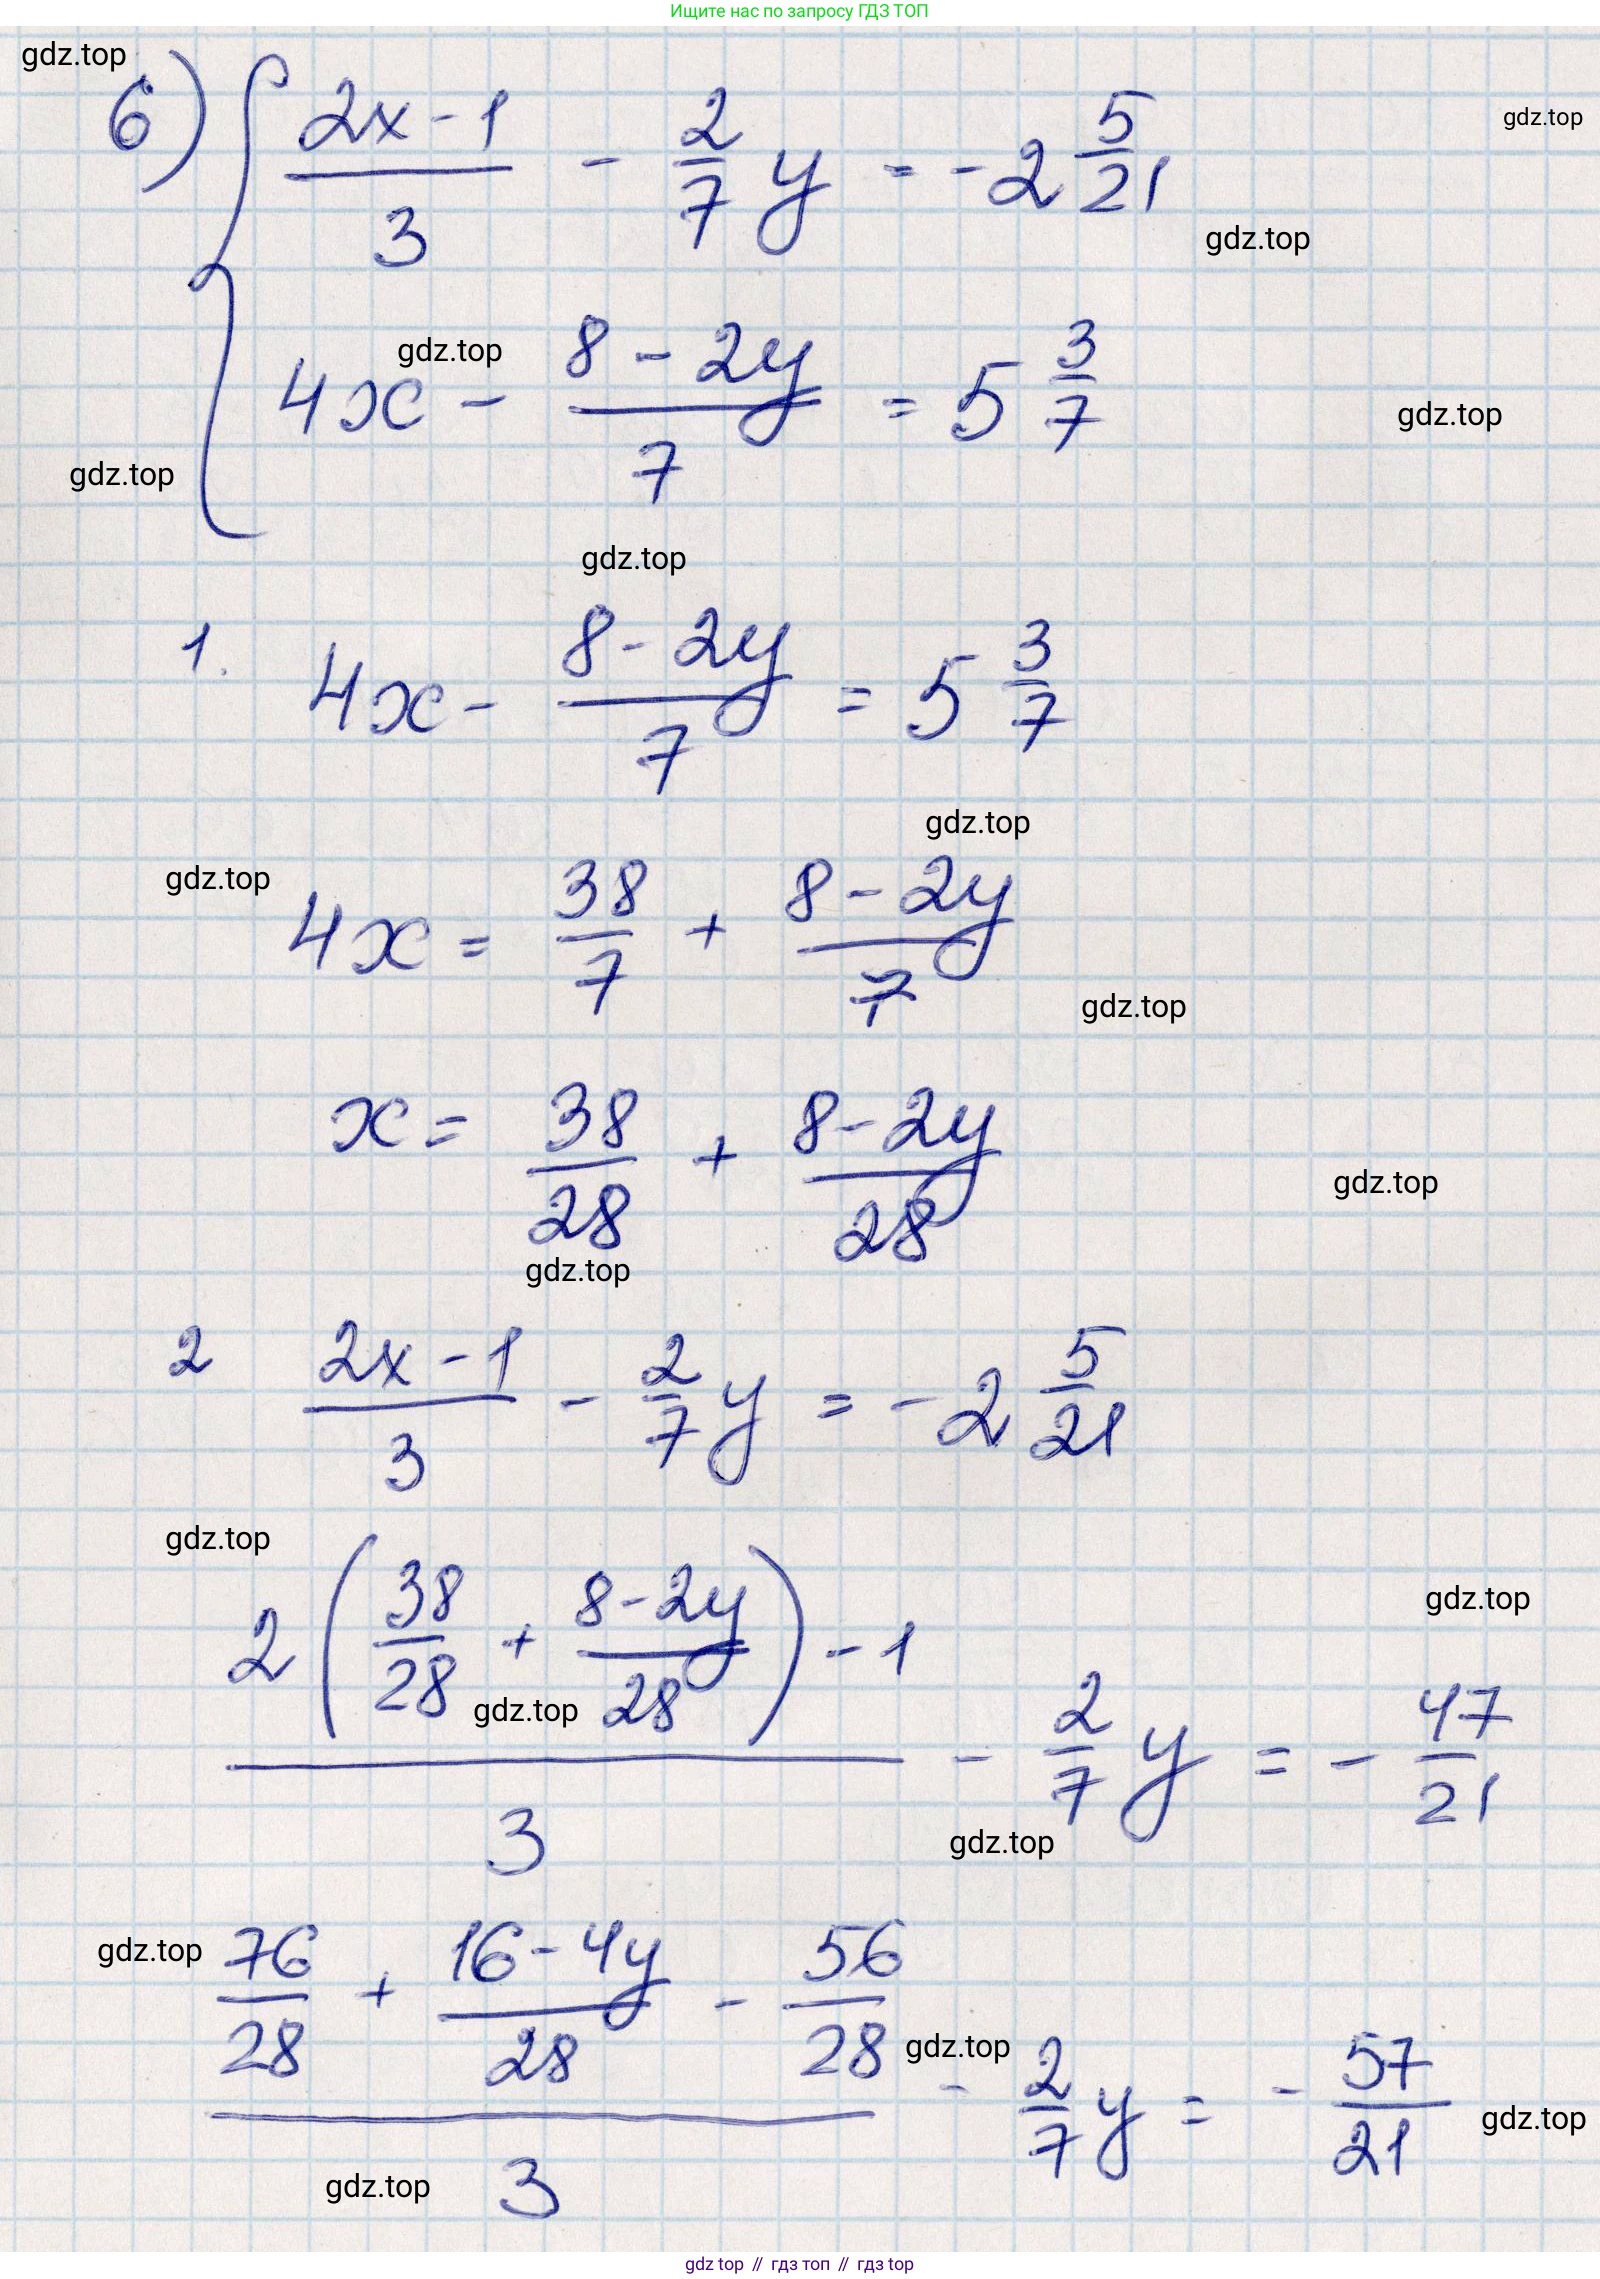 Ищите нас по запросу ГДЗ ТОП
gdz.top
6) { (2x-1)/3 - 2/7 y = -2 5/21
gdz.top
gdz.top
4x - (8-2y)/7 = 5 3/7
gdz.top
gdz.top
gdz.top
gdz.top
1. 4x - (8-2y)/7 = 5 3/7
gdz.top
gdz.top
4x = 38/7 + (8-2y)/7
gdz.top
x = 38/28 + (8-2y)/28
gdz.top
gdz.top
2 (2x-1)/3 - 2/7 y = -2 5/21
gdz.top
gdz.top
(2(38/28 + (8-2y)/28) - 1)/3 - 2/7 y = - 47/21
gdz.top
gdz.top
gdz.top
(76/28 + (16-4y)/28 - 56/28)/3 - 2/7 y = - 57/21
gdz.top
gdz.top
gdz.top
gdz top // гдз топ // гдз top